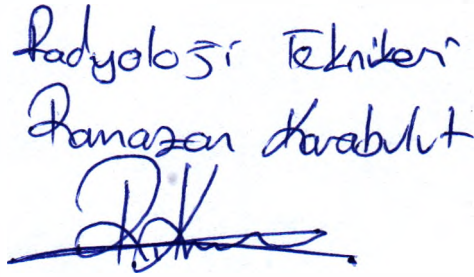 Radyoloji Teknikeri
Ramazan Karabulut